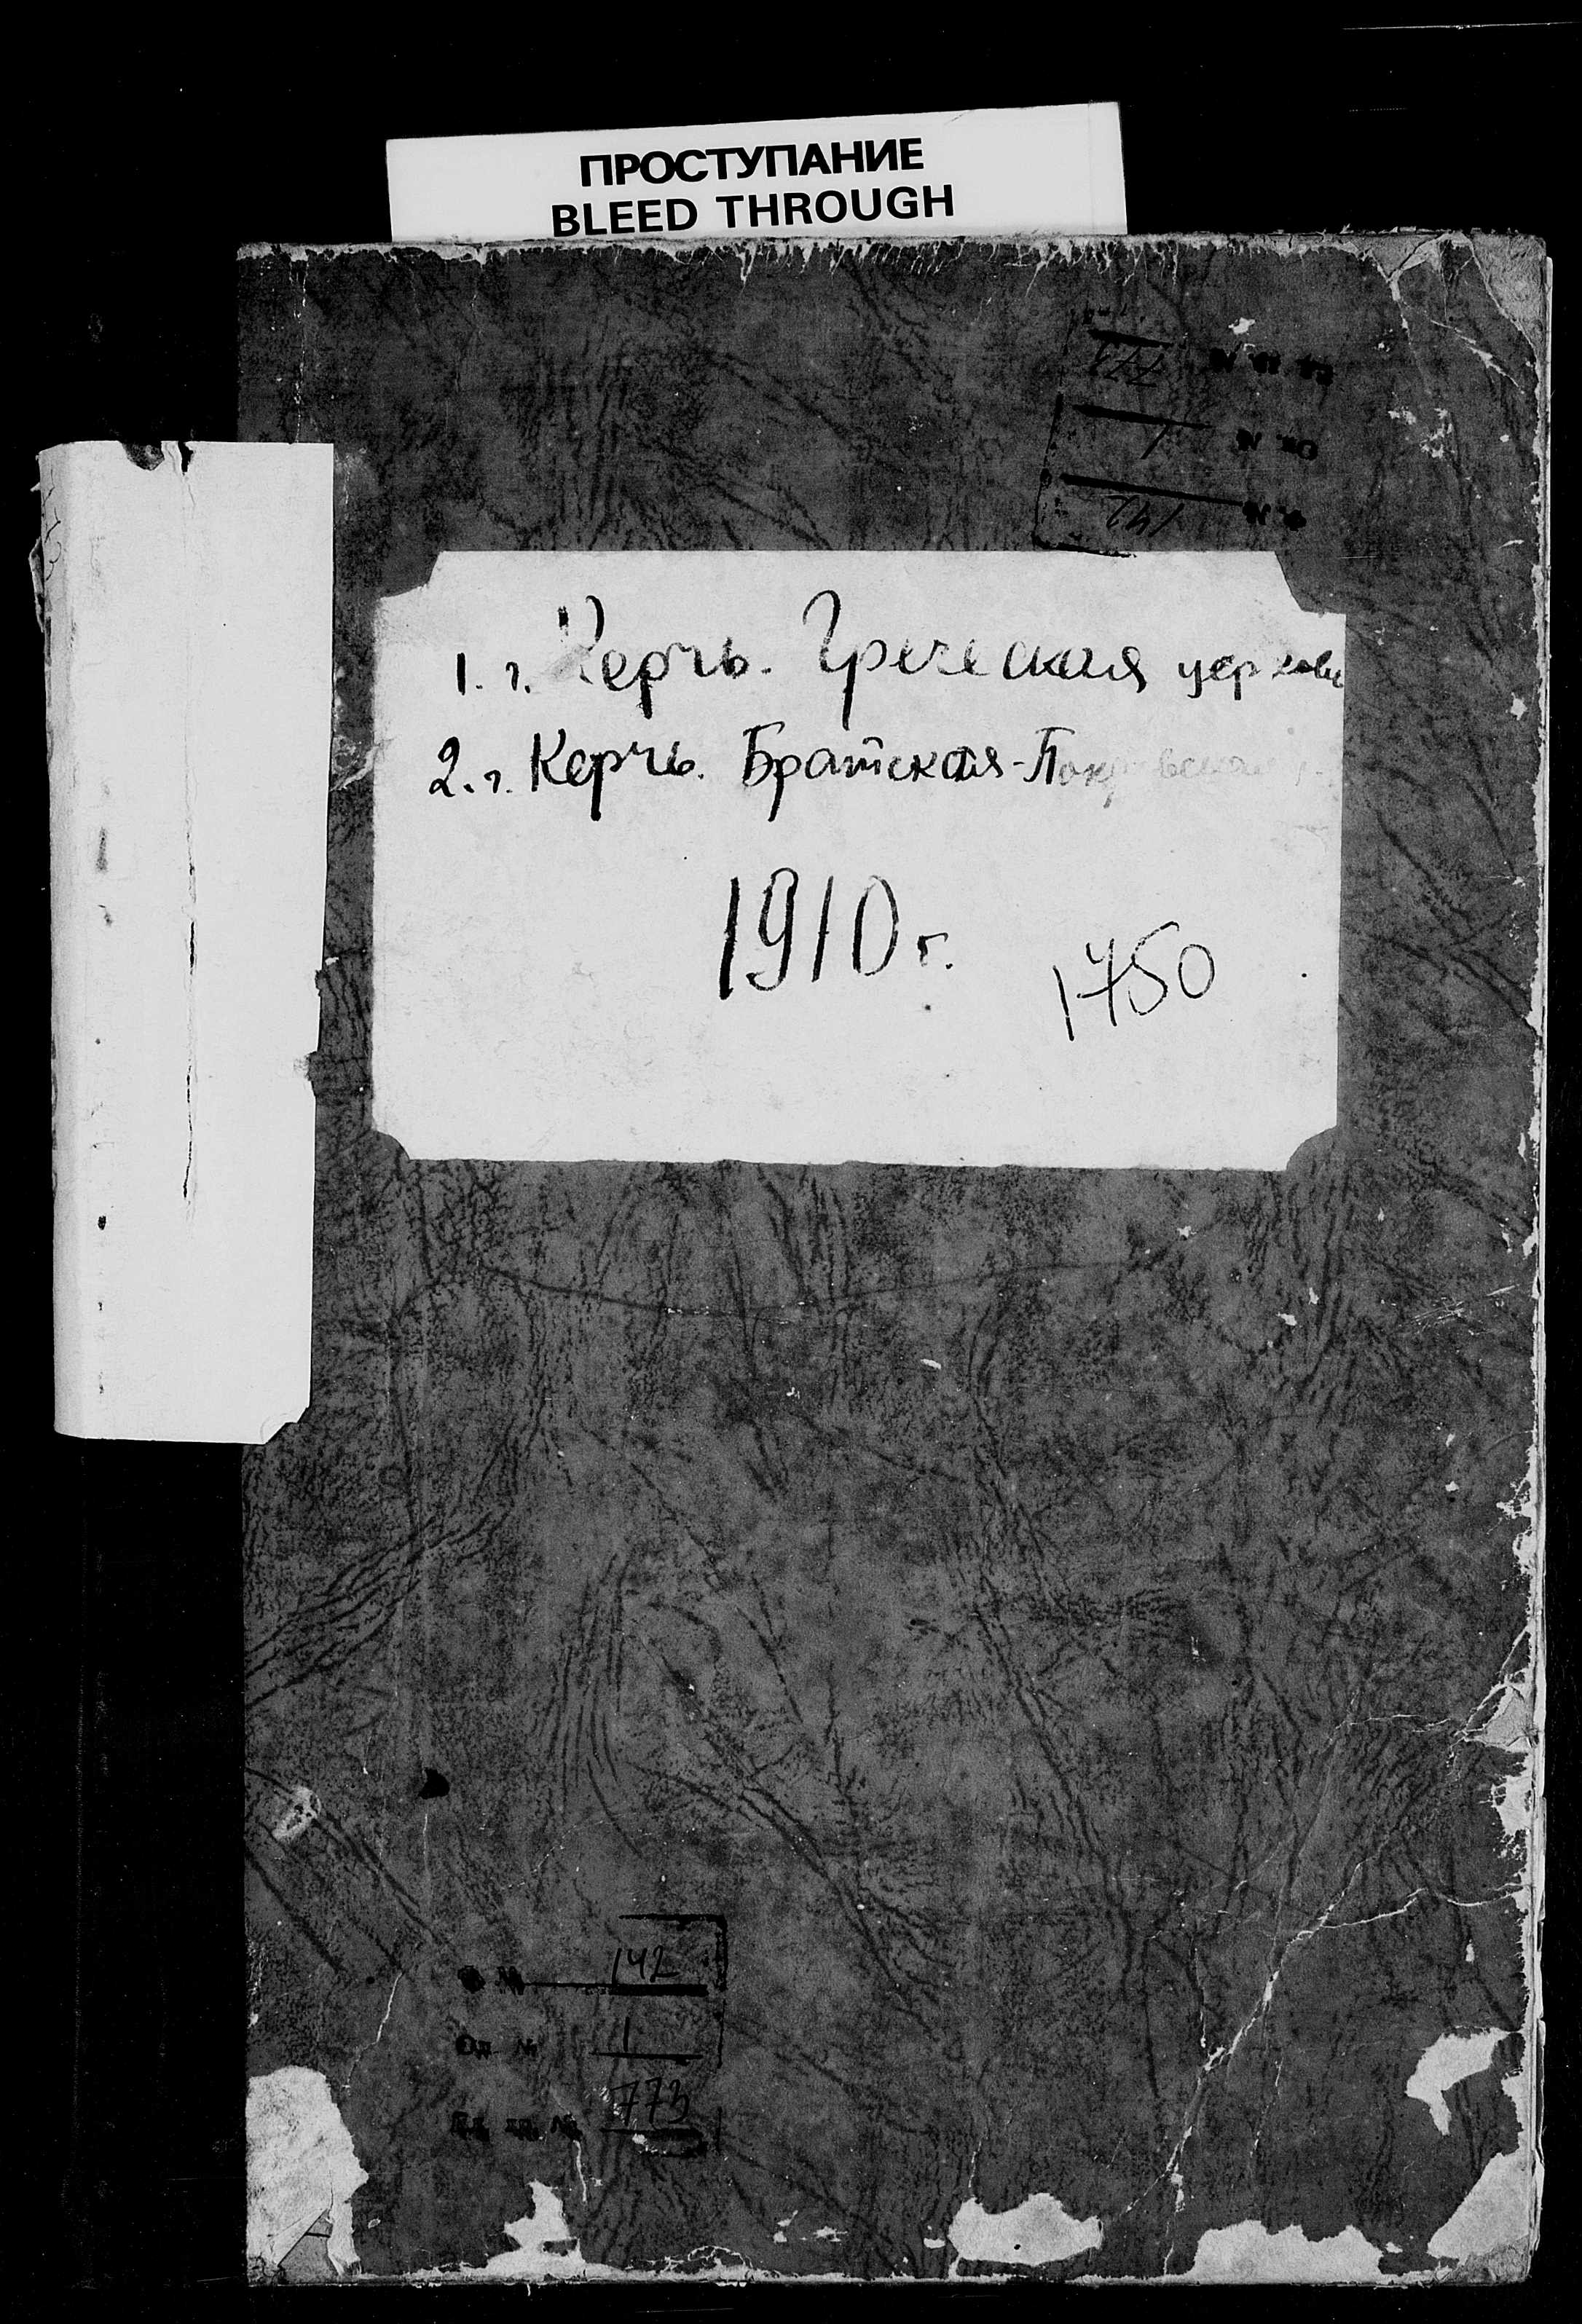 ПРОСТУПАНИЕ
BLEED THROUGH
Ед. хр. № 773
Оп. № 1
Ф. № 142
1. г. Керчь. Греческая церковь
2. г. Керчь. Братская-Покровская
1910 г.
1750
Ф. № 142
Оп. № 1
Ед. хр. № 773